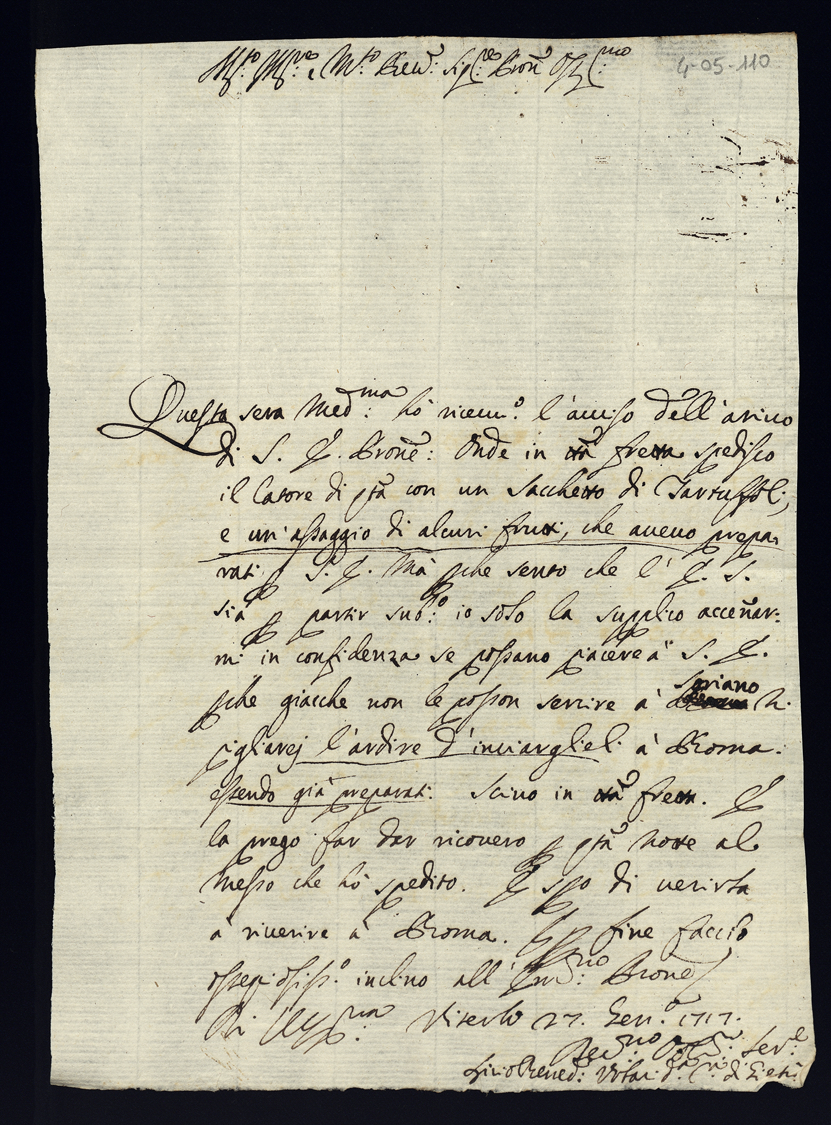 4-05-110
Questa sera Med:ma hò riceuu:o l'auuiso dell'ariuo
di S. E. Prone: Onde in tta fretta spedisco
il Latore di pta con un Sacchetto di Tartuffoli,
e un'assaggio di alcuri frutti, che aueuo prepa-
rati p S. E. Mà pche sento che l' E. S.
sia p partir sub:o io solo la supplico accenar-
mi in confidenza se possano piacere à S. E.
pche giacche non le posson seruire à Soriano
pigliarej l'ardire d'inuiarglieli à Roma.
essendo già preparati. Sciuo in tta fretta. E
la prego far dar ricouero p pta notte al
Messo che hò spedito. E spo di uenirla
à riuerire à Roma. E p fine faccio
ossequiosiss:o inclino all'
Viterbo 27. Gen:o 1717.